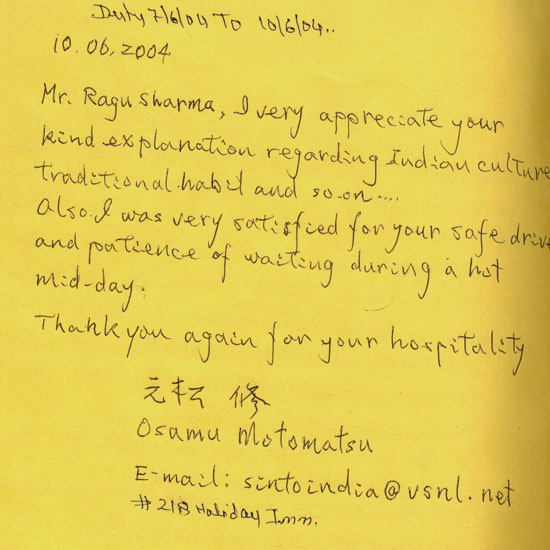 Duty 7/6/04 To 10/6/04..
10.06,2004
Mr. Ragu sharma, I very appreciate your
kind explanation regarding Indian culture
traditional.habit and so.on....
Also.I was very satisfied for your safe drive
and patience of waiting during a hot
mid-day.
Thank you again for your hospitality
修
Osamu Motomatsu
E-mail: sintoindia@vsnl.net
#218 Haliday Inn.